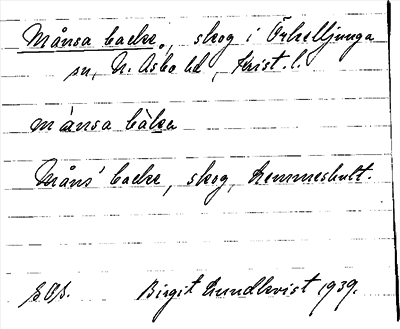 Månsa backe, skog i Örkelljunga
sn, N. Åsbo hd, Krist. l.
månsa bàka
Måns' backe, skog, Lemmeshult.
Birgit Lundkvist 1939.